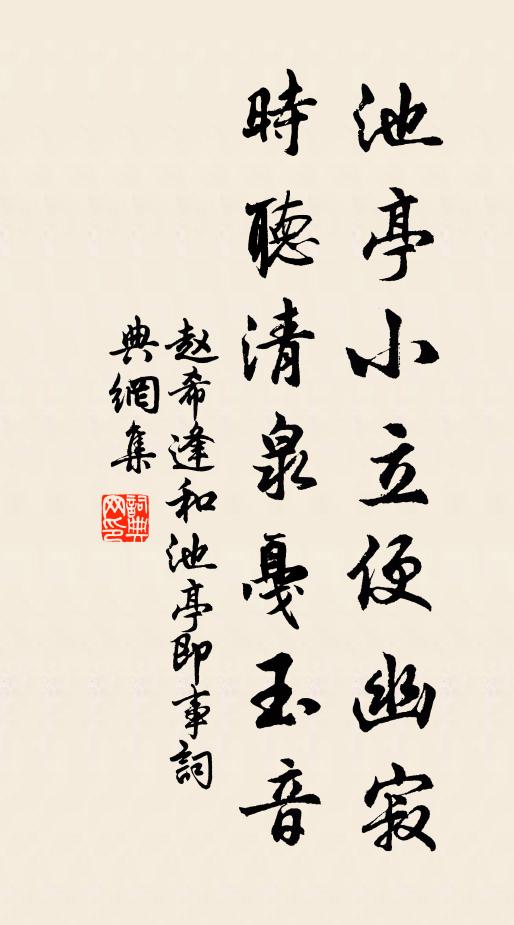 池亭小立便幽寂
時聽清泉戛玉音
赵希逢和池亭即事詞
典網集
詞典
网印